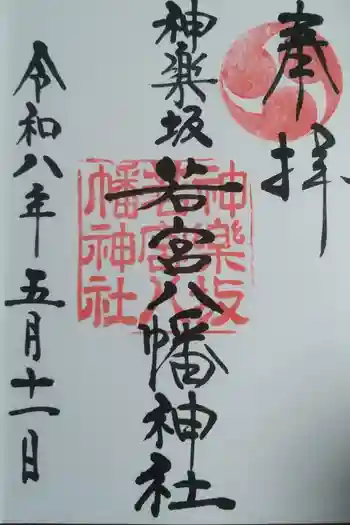 奉拝
神楽坂
若宮八幡神社
神楽坂
若宮八
幡神社
令和八年五月十一日